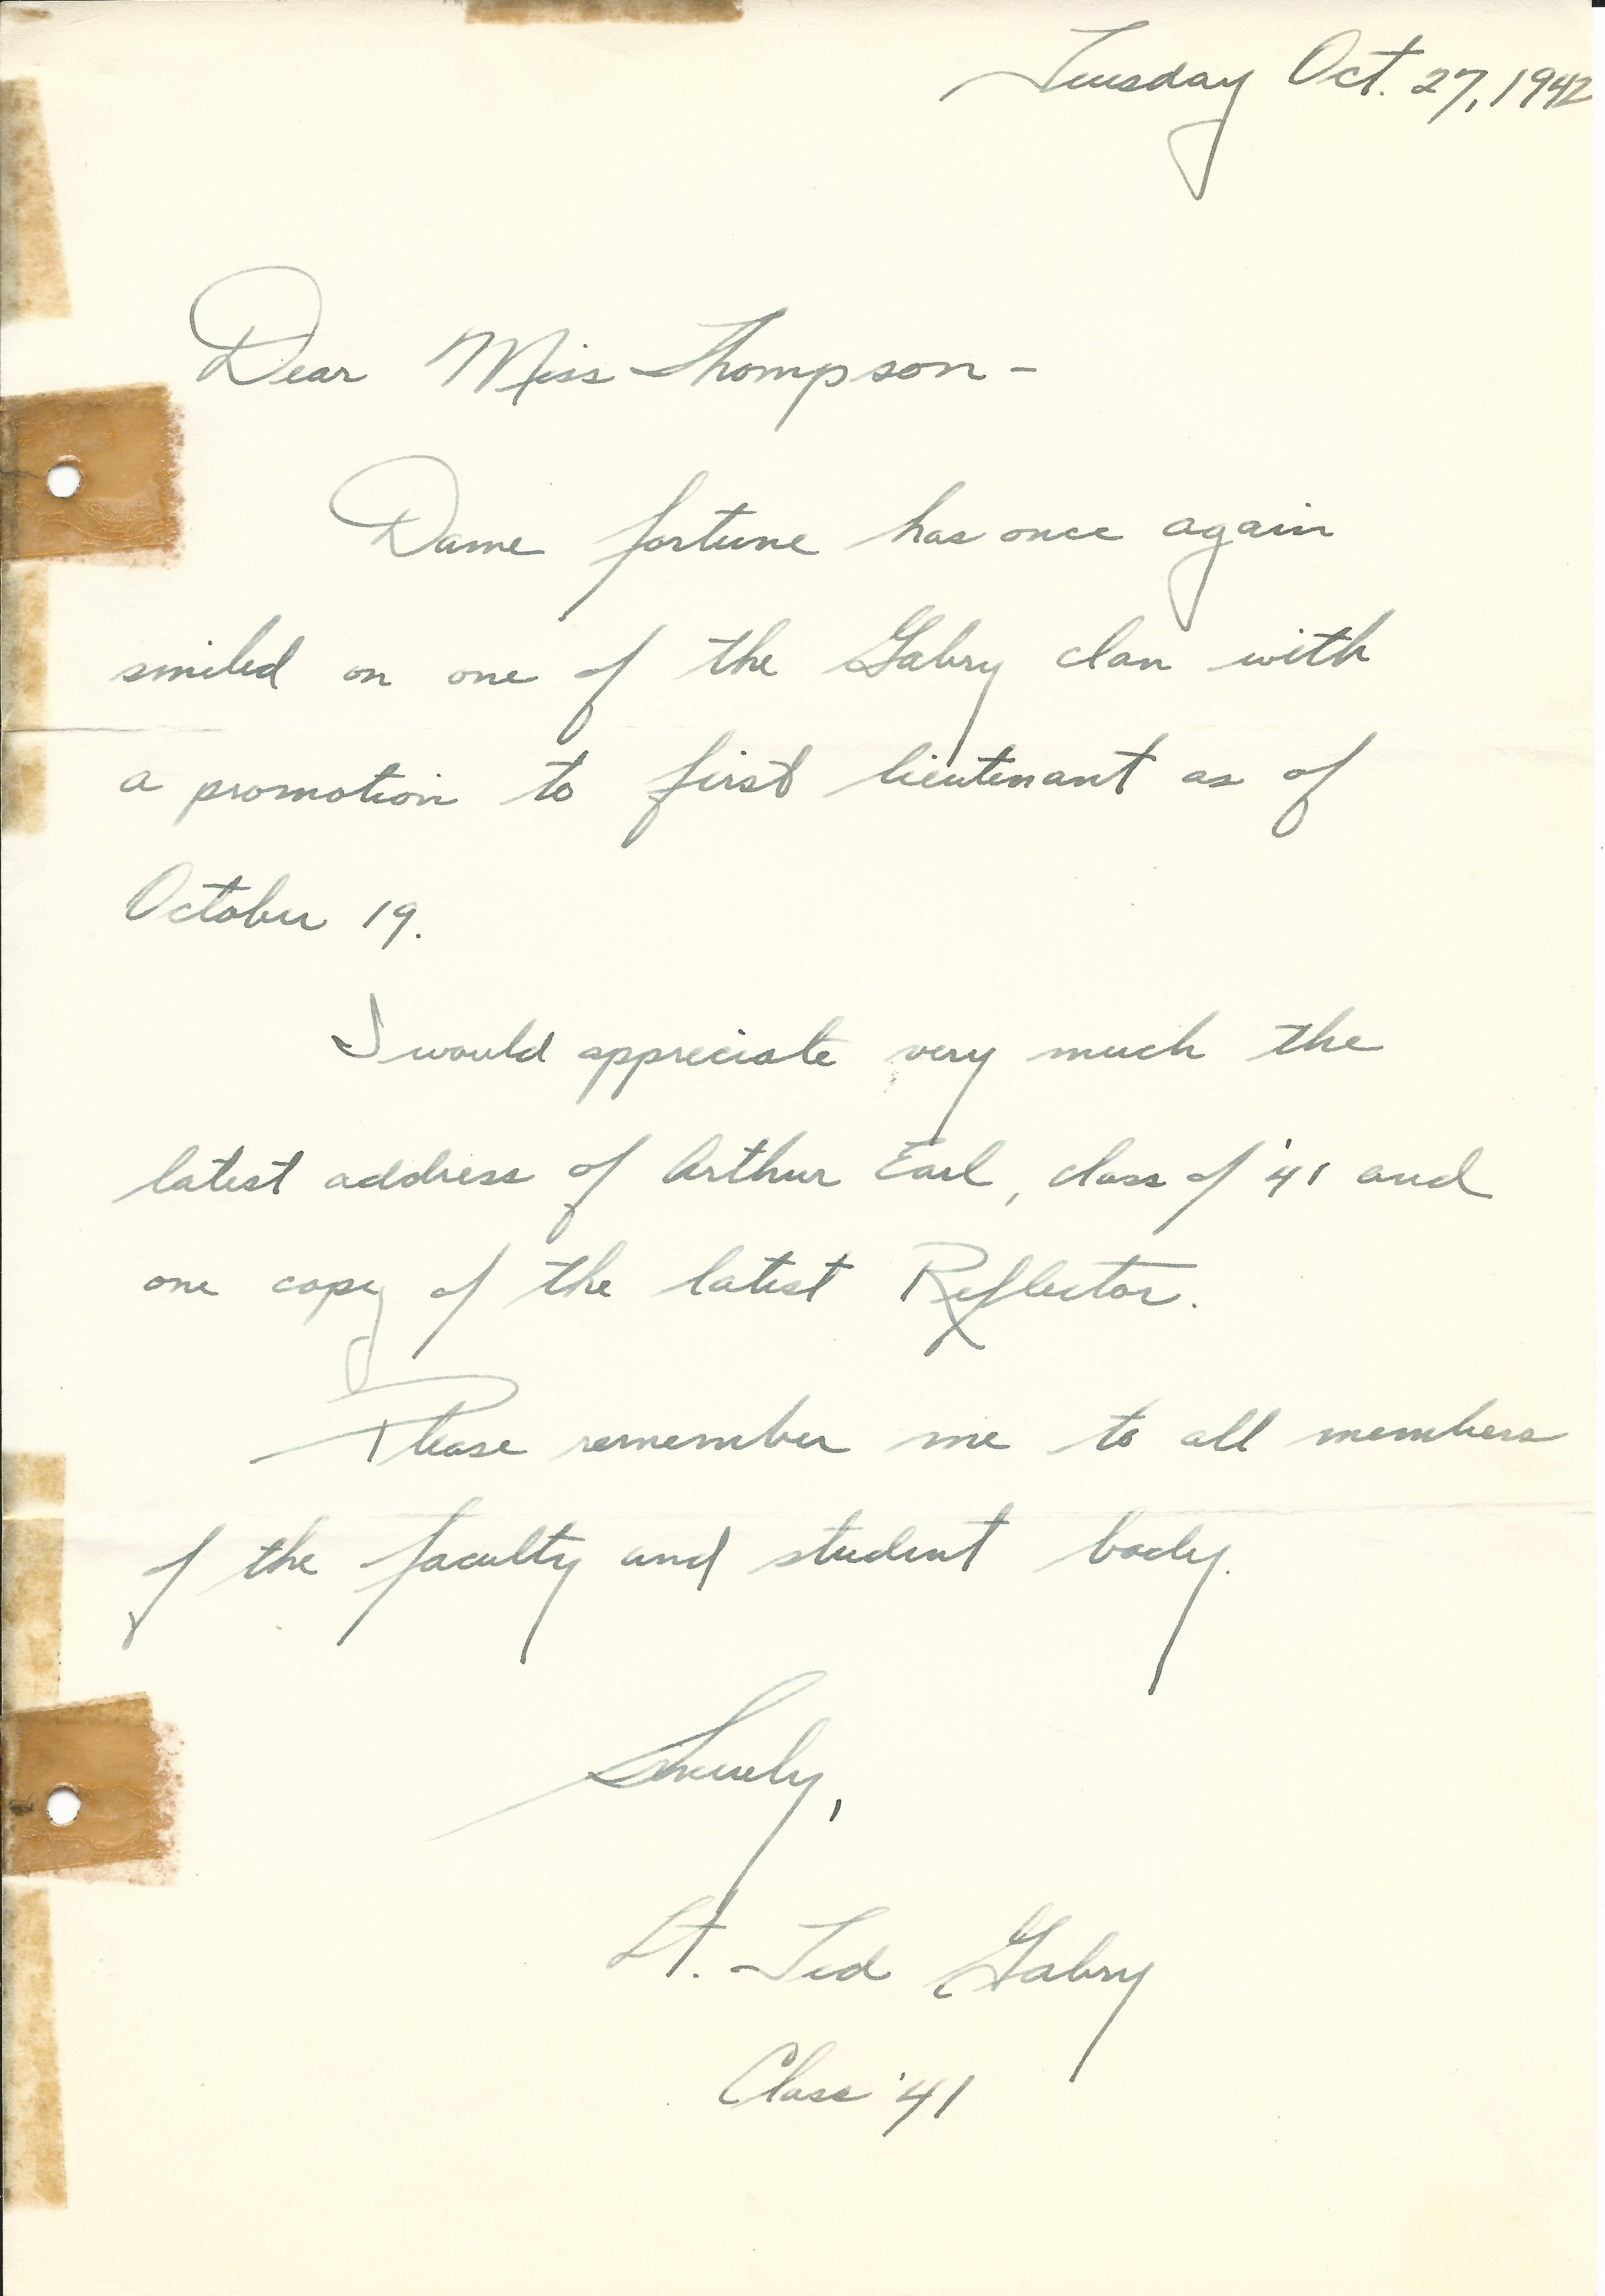 Tuesday Oct. 27, 1942
Dear Miss Thompson -
Dame fortune has once again
smiled on one of the Gabry clan with
a promotion to first lieutenant as of
October 19.
I would appreciate very much the
latest address of Arthur Earl, class of '41 and
one copy of the latest Reflector.
Please remember me to all members
of the faculty and student body.
Sincerely,
Lt. Ted Gabry
Class '41